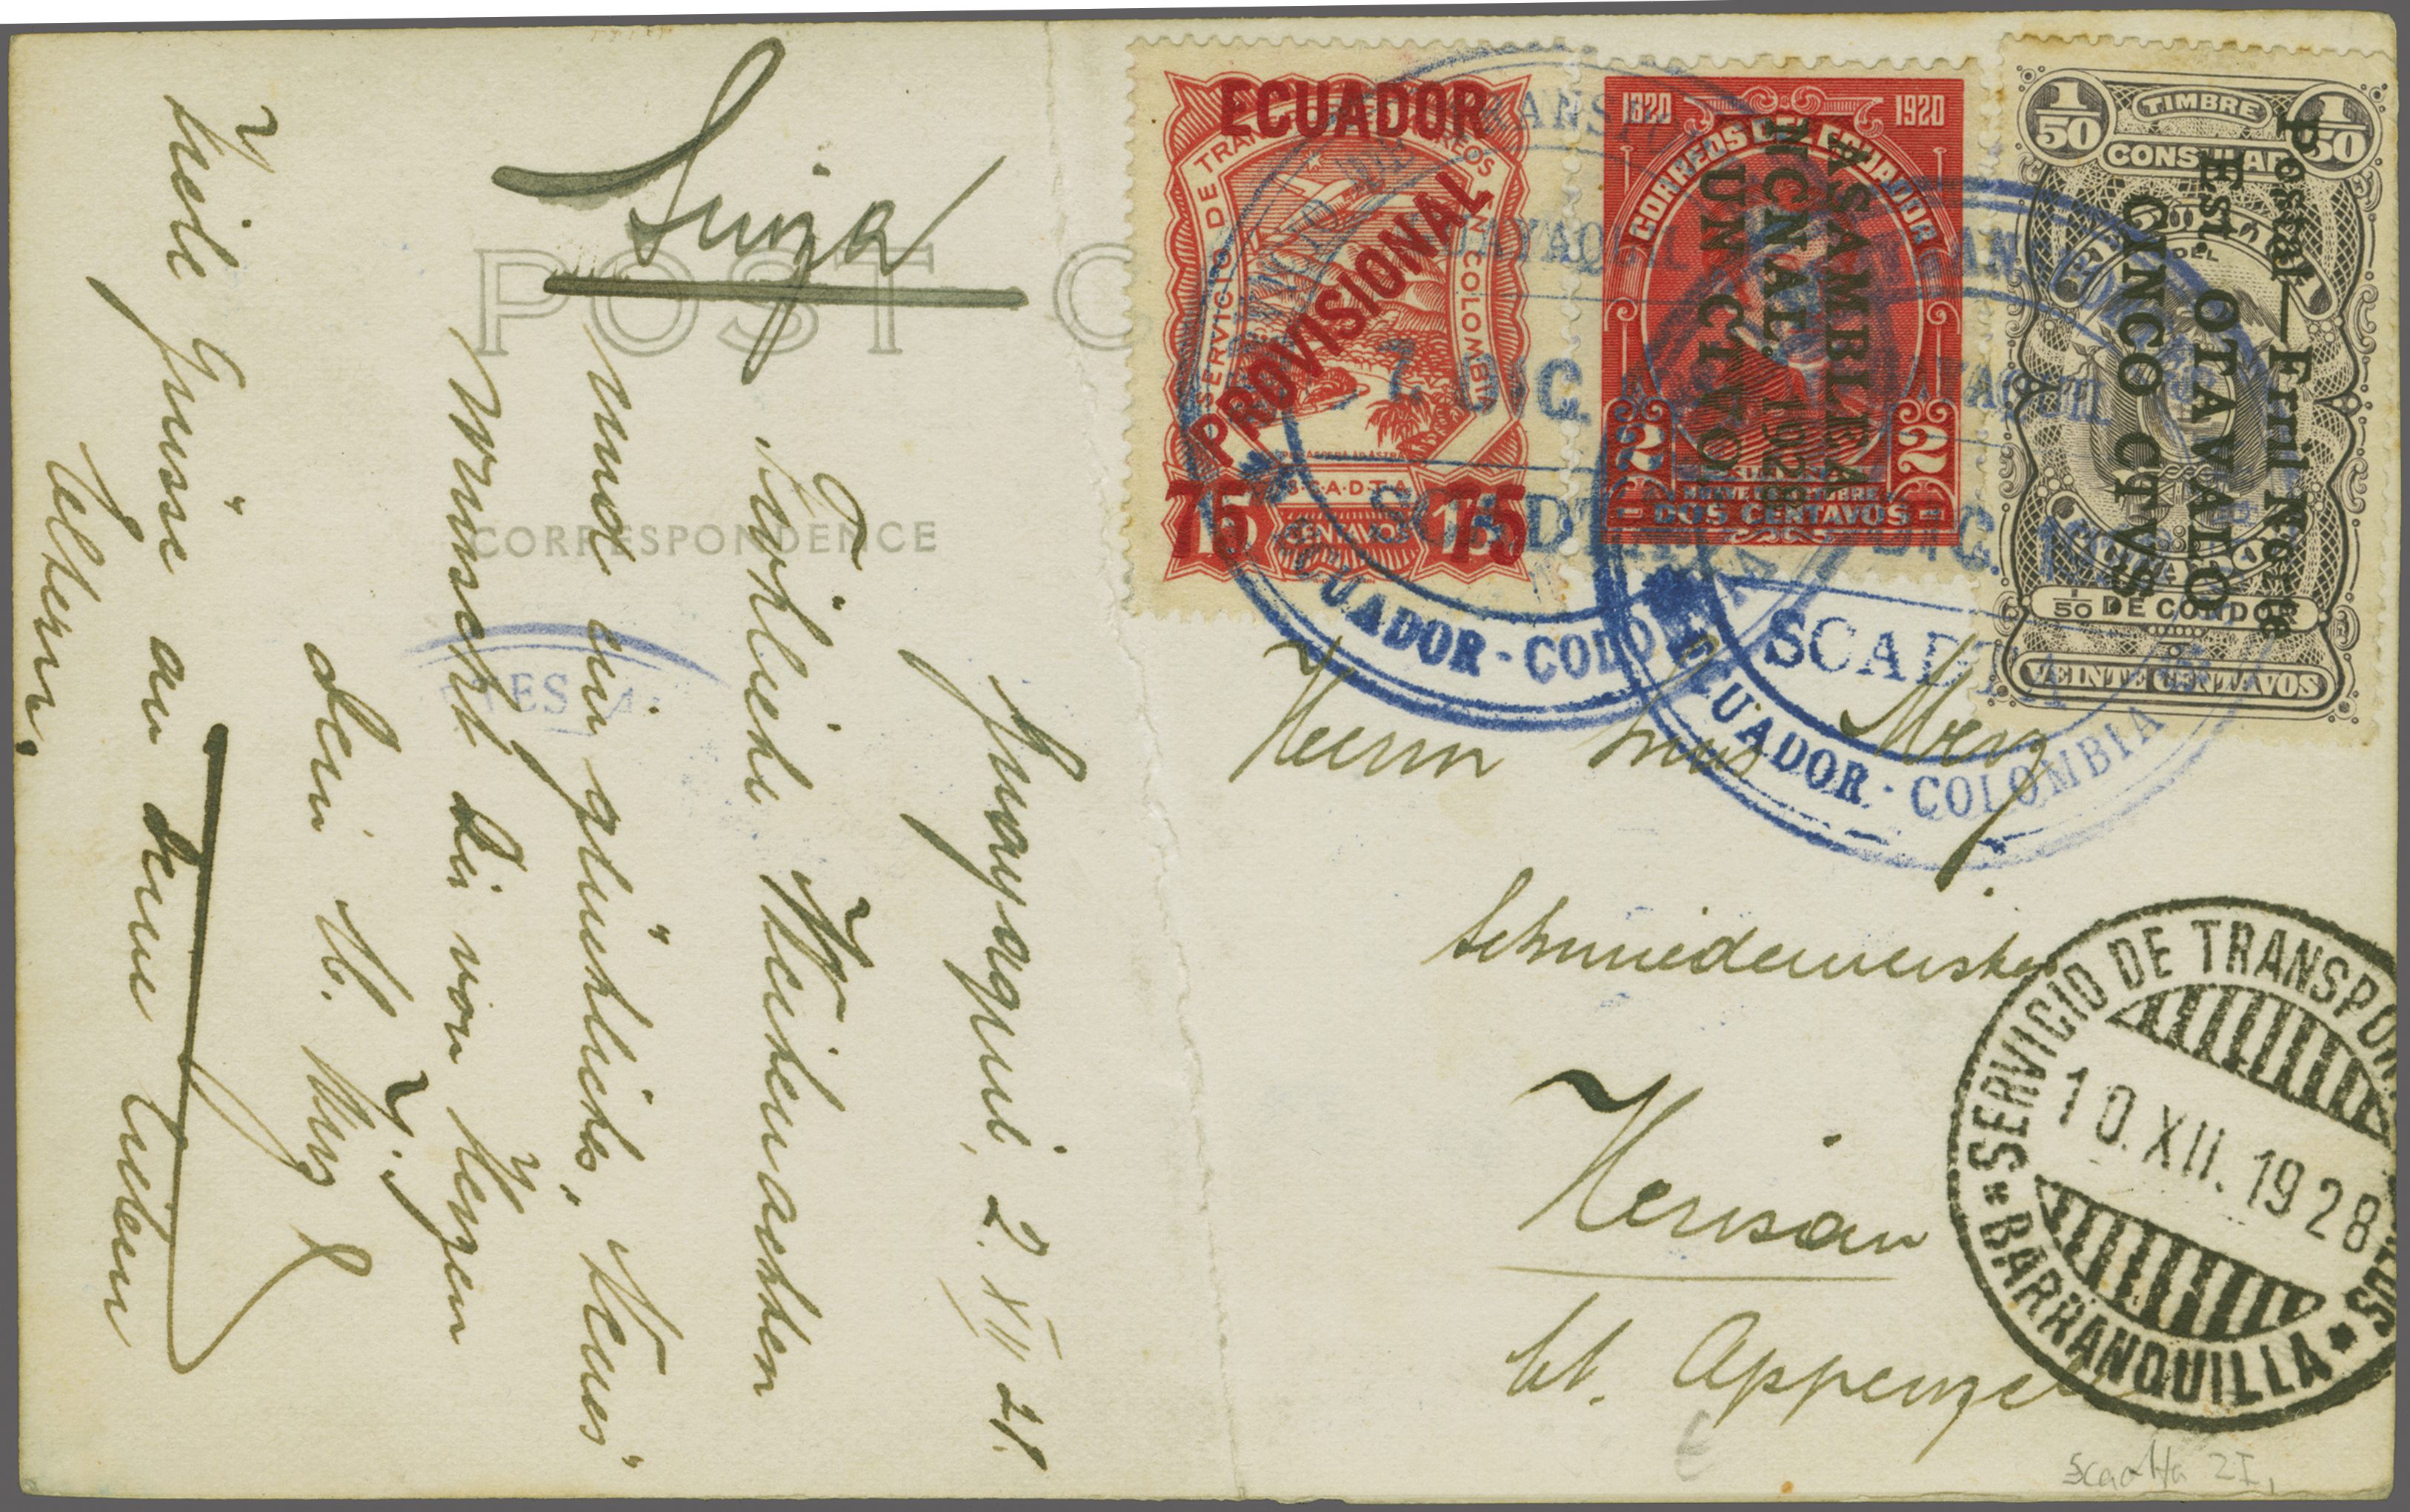 Suiza
POST C
CORRESPONDENCE
Guayaquil, 2. XII 28.
Fröhliche Weihnachten
und ein glückliches "Neues"
Wünscht dir von Herzen
dein
Viele Grüsse an deine lieben
Eltern.
ECUADOR
SERVICIO DE TRANSPORTES AEREOS EN COLOMBIA
PROVISIONAL
S.C.A.D.T.A.
75 75
15 CENTAVOS 15
1820 1920
CORREOS DEL ECUADOR
ASAMBLEA
NCNAL. 1928.
UN CTVO.
2 2
DOS CENTAVOS
1/50 TIMBRE 1/50
CONSULAR
DEL
Postal—Frril Norte
Est. OTAVALO
CINCO CTVS
1/50 DE CONDOR
VEINTE CENTAVOS
GUAYAQUIL
7. DIC.
SCADTA
ECUADOR - COLOMBIA
GUAYAQUIL
DIC. 1928
SCADTA
ECUADOR - COLOMBIA
Herrn Merz
Schmiedemeister
Herisau
Kt. Appenzell
SERVICIO DE TRANSPORTES
10.XII.1928
BARRANQUILLA
Scadta 2I,